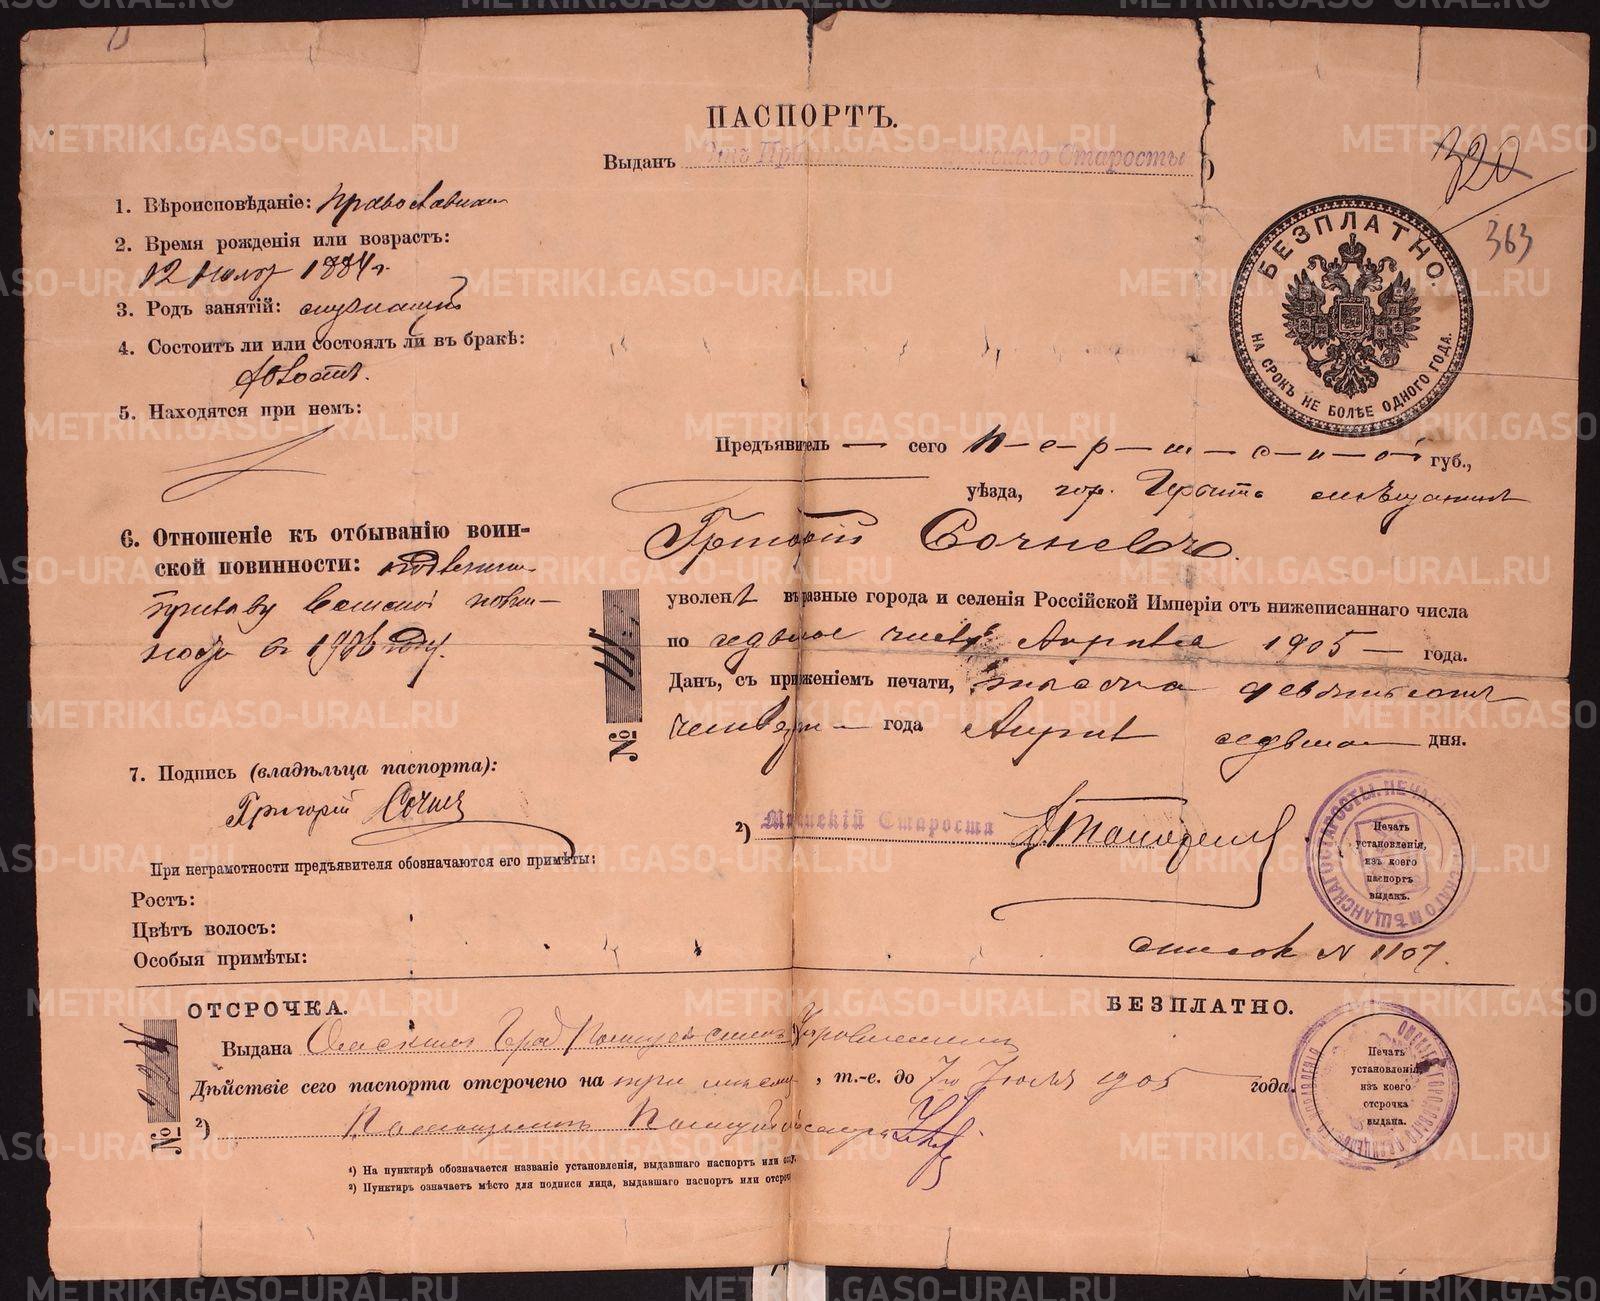 ПАСПОРТЪ.
Выданъ Старосты
320
363
БЕЗПЛАТНО.
НА СРОКЪ НЕ БОЛѢЕ ОДНОГО ГОДА.
1. Вѣроисповѣданіе: Православнаго
2. Время рожденія или возрастъ:
12 1884 г.
3. Родъ занятій: служащій
4. Состоитъ ли или состоялъ ли въ бракѣ:
Холостъ.
5. Находятся при немъ:
Предъявитель — сего П-е-р-м-с-к-о-й губ.,
уѣзда, гор. Ирбита мѣщанинъ
Григорій Сочневъ.
6. Отношеніе къ отбыванію воин-
ской повинности: подлежитъ
призыву воинской повин-
ности въ 1906 году.
уволенъ въ разные города и селенія Россійской Имперіи отъ нижеписаннаго числа
по седьмое число Апрѣля 1905 — года.
Данъ, съ приложеніемъ печати, тысяча девятьсотъ
четвертаго — года Апрѣля седьмаго дня.
№
7. Подпись (владѣльца паспорта):
Григорій Сочневъ
²) Мѣщанскій Староста
Печать
установленія,
изъ коего
паспортъ
выданъ.
При неграмотности предъявителя обозначаются его примѣты:
Ростъ:
Цвѣтъ волосъ:
Особыя примѣты:
списокъ N 1107.
ОТСРОЧКА. БЕЗПЛАТНО.
№
Выдана Омскимъ Гор Полицейскимъ Управленіемъ
Дѣйствіе сего паспорта отсрочено на три мѣсяца, т.-е. до 7го Іюля 1905 года.
²) Помощникъ Полиціймейстера
Печать
установленія,
изъ коего
отсрочка
выдана.
¹) На пунктирѣ обозначается названіе установленія, выдавшаго паспортъ или
²) Пунктиръ означаетъ мѣсто для подписи лица, выдавшаго паспортъ или
METRIKI.GASO-URAL.RU